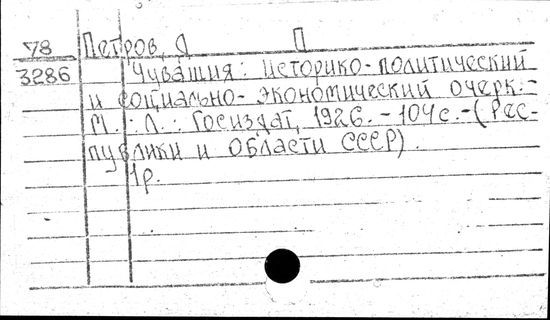 78 Петров, Д П
3286 Чувашия: историко-политический
и социально-экономический очерк.-
М.: Л.: Госиздат, 1926. - 104 с. - (Рес-
публики и области СССР).
1р.